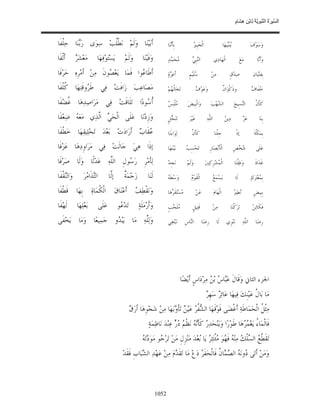 السيرة النبوية لابن هشام
وَسَوْفَ يُنَبِّيهَا الْخَبِيرُ بِأَنَّنَا أَبَيْنَا وَلَمْ نَطْلُبْ سِوَى رَبِّنَا حِلْفَا
وَأَنَّا مَعَ الْهَادِي النَّبِيِّ مُحَمَّدٍ وَفَيْنَا وَلَمْ يَسْتَوْفِهَا مَعْشَرٌ أَلْفَا
بِفِتْيَانِ صِدْقٍ مِنْ سُلَيْمٍ أَعِزَّةٍ أَطَاعُوا فَمَا يَعْصُونَ مِنْ أَمْرِهِ حَرْفَا
خُفَافٌ وَذَكْوَانٌ وَعَوْفٌ تَخَالُهُمْ مَصَاعِبَ زَافَتْ فِي طَرُوقَتِهَا كُلْفَا
كَأَنَّ النَّسِيجَ الشُّهْبَ وَالْبِيضَ مُلْبَسٌ أُسُودًا تَلَاقَتْ فِي مَرَاصِدِهَا غُضْفَا
بِنَا عَزَّ دِينُ اللَّهِ غَيْرَ تَنَحُّلٍ وَزِدْنَا عَلَى الْحَيِّ الَّذِي مَعَهُ ضِعْفَا
بِمَكَّةَ إذْ جِئْنَا كَأَنَّ لِوَاءَنَا عُقَابٌ أَرَادَتْ بَعْدَ تَحْلِيقِهَا خَطْفَا
عَلَى شُخَّصِ الْأَبْصَارِ تَحْسِبُ بَيْنَهَا إذَا هِيَ جَالَتْ فِي مَرَاوِدِهَا عَزْفَا
غَدَاةَ وَطِئْنَا الْمُشْرِكِينَ وَلَمْ نَجِدْ لِأَمْرِ رَسُولِ اللَّهِ عَدْلًا وَلَا صَرْفَا
بِمُعْتَرَكٍ لَا يَسْمَعُ الْقَوْمُ وَسْطَهُ لَنَا زَجْمَةٌ إلَّا التَّذَامُرَ وَالنَّقْفَا
بِبِيضٍ نُطِيرُ الْهَامَ عَنْ مُسْتَقَرِّهَا وَنَقْطِفُ أَعْنَاقَ الْكُمَاةِ بِهَا قَطْفَا
فَكَائِنْ تَرَكْنَا مِنْ قَتِيلٍ مُلَحَّبٍ وَأَرْمَلَةٍ تَدْعُو عَلَى بَعْلِهَا لَهْفَا
رِضَا اللَّهِ نَنْوِي لَا رِضَا النَّاسِ نَبْتَغِي وَلِلَّهِ مَا يَبْدُو جَمِيعًا وَمَا يَخْفَى
الجزء الثاني وَقَالَ عَبَّاسُ بْنُ مِرْدَاسٍ أَيْضًا
مَا بَالُ عَيْنِكَ فِيهَا عَائِرٌ سَهِرٌ
مِثْلُ الْحَمَاطَةِ أَغْضَى فَوْقَهَا الشُّفُرُ عَيْنٌ تَأَوَّبَهَا مِنْ شَجْوِهَا أَرَقٌ
فَالْمَاءُ يَغْمُرُهَا طَوْرًا وَيَنْحَدِرُ كَأَنَّهُ نَظْمُ دُرٍّ عِنْدَ نَاظِمَةٍ
تَقَطَّعَ السِّلْكُ مِنْهُ فَهُوَ مُنْتَثِرُ يَا بُعْدَ مَنْزِلِ مَنْ تَرْجُو مَوَدَّتَهُ
وَمَنْ أَتَى دُونَهُ الصَّمَّانُ فَالْحَفَرُ دَعْ مَا تَقَدَّمَ مِنْ عَهْدِ الشَّبَابِ فَقَدْ
1052